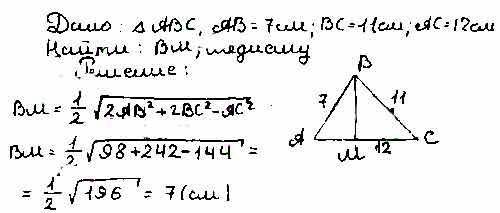 Дано: △ ABC, AB = 7см; BC = 11см; AC = 12см
Найти: BM, медиану
Решение:
BM = 1/2 √(2AB² + 2BC² - AC²)
BM = 1/2 √(98 + 242 - 144) =
= 1/2 √196 = 7 (см)
B
7
11
A
M
12
C